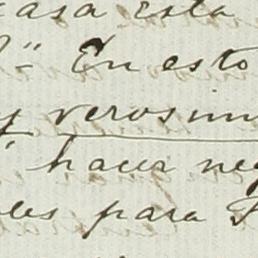 casa esta
En esto
y verosimi
hacer neg
les para